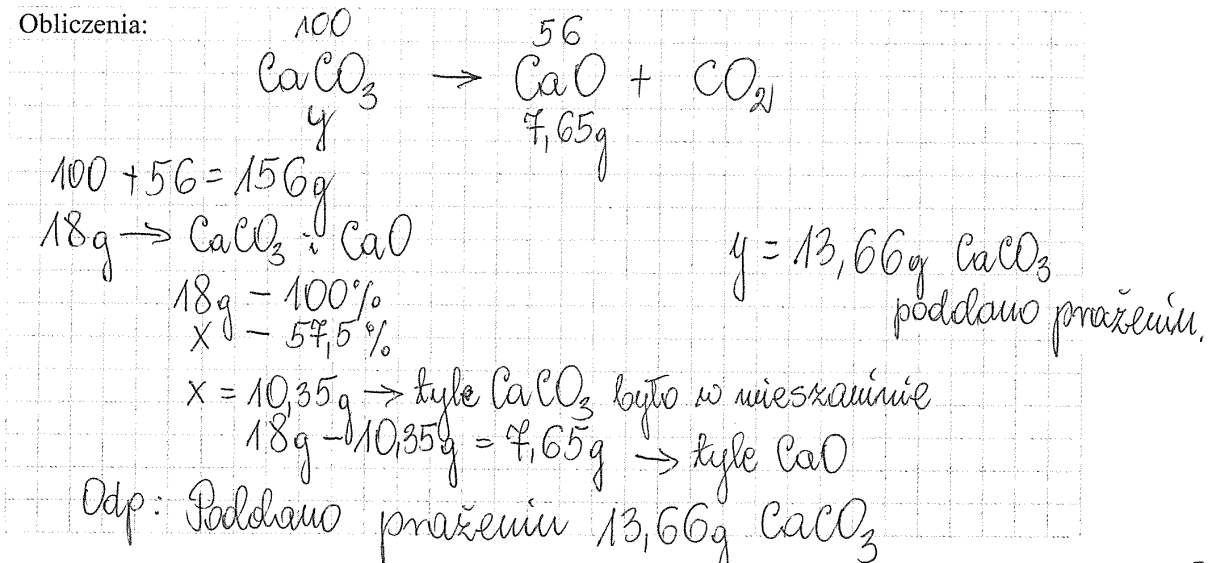 Obliczenia:
100 56
CaCO₃ → CaO + CO₂
y 7,65g
100 + 56 = 156g
18g → CaCO₃ i CaO
y = 13,66g CaCO₃
poddano prażeniu.
18g – 100%
x – 57,5%
x = 10,35g → tyle CaCO₃ było w mieszaninie
18g – 10,35g = 7,65g → tyle CaO
Odp: Poddano prażeniu 13,66g CaCO₃